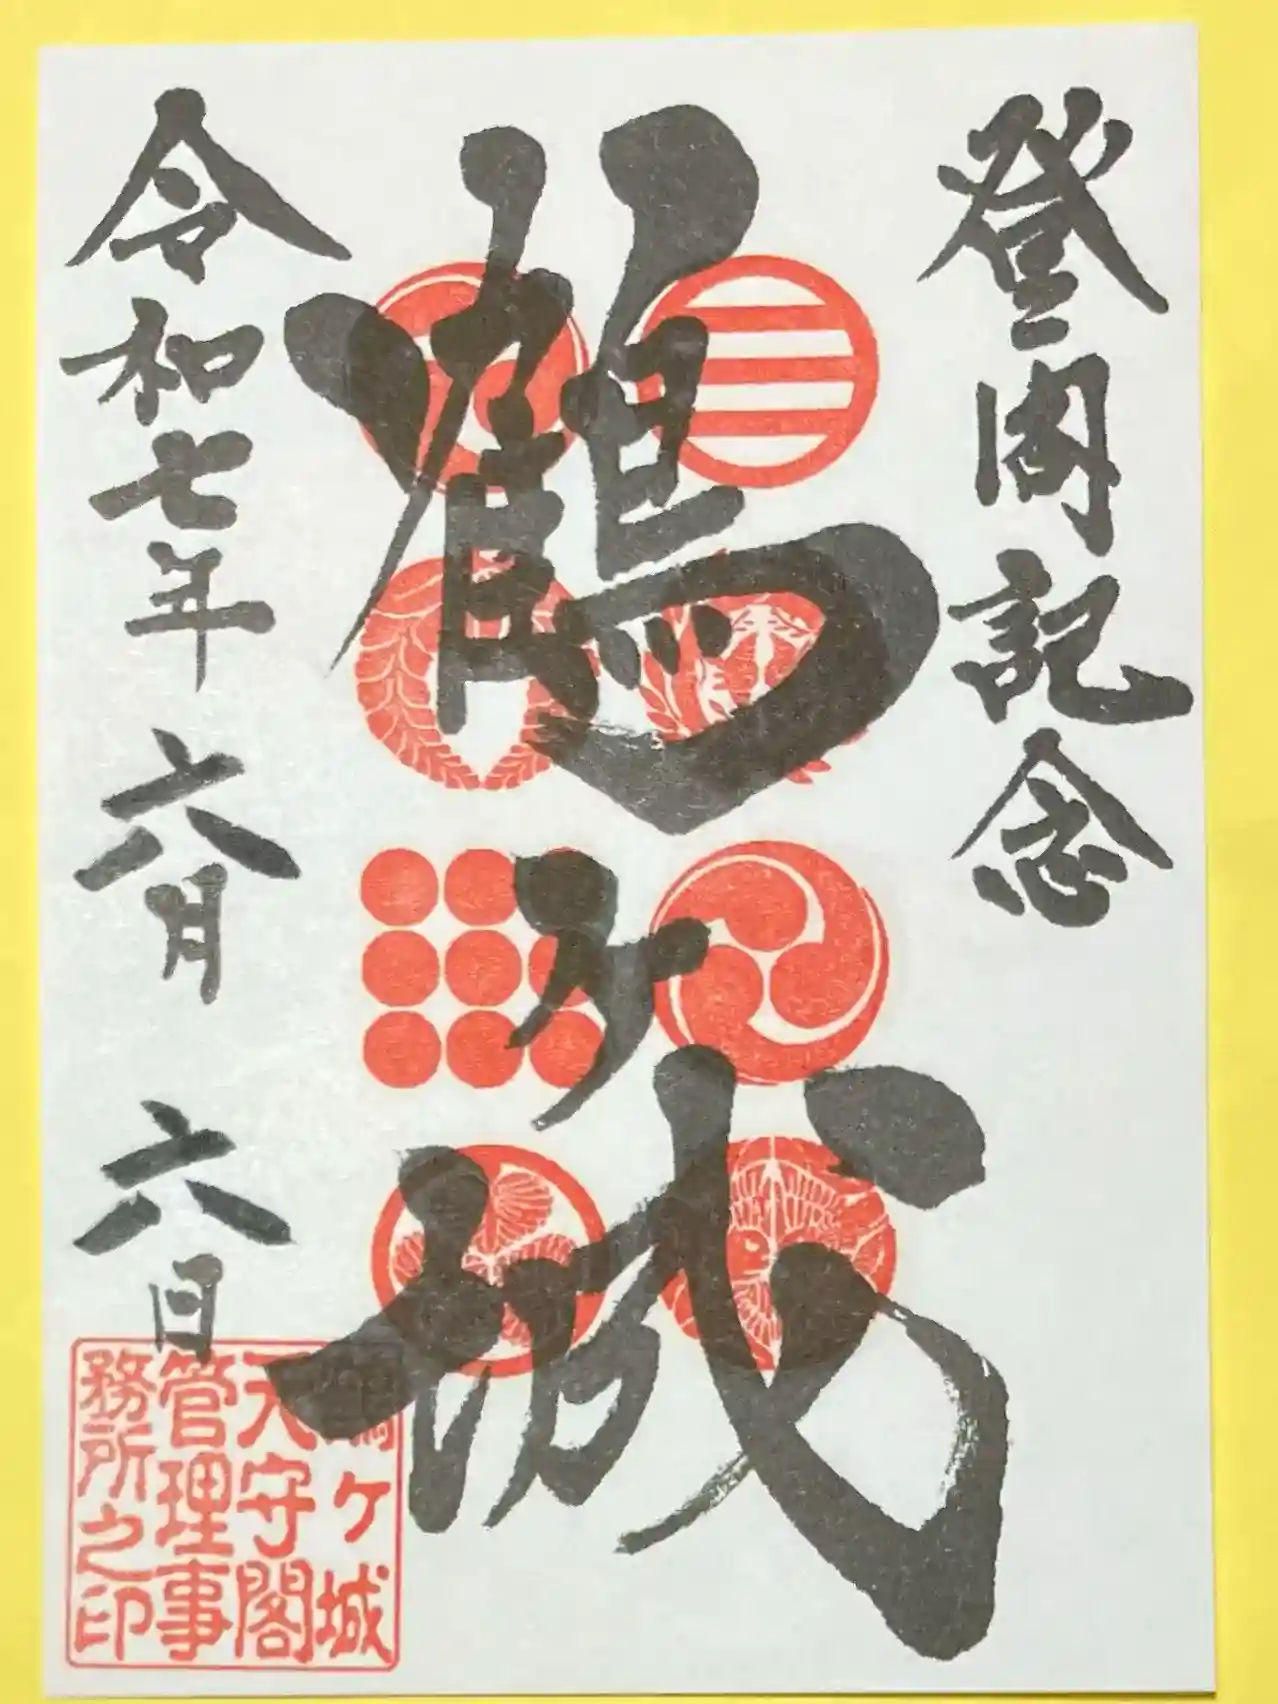 登閣記念
鶴ヶ城
令和七年六月六日
鶴ヶ城
天守閣
管理事
務所之印